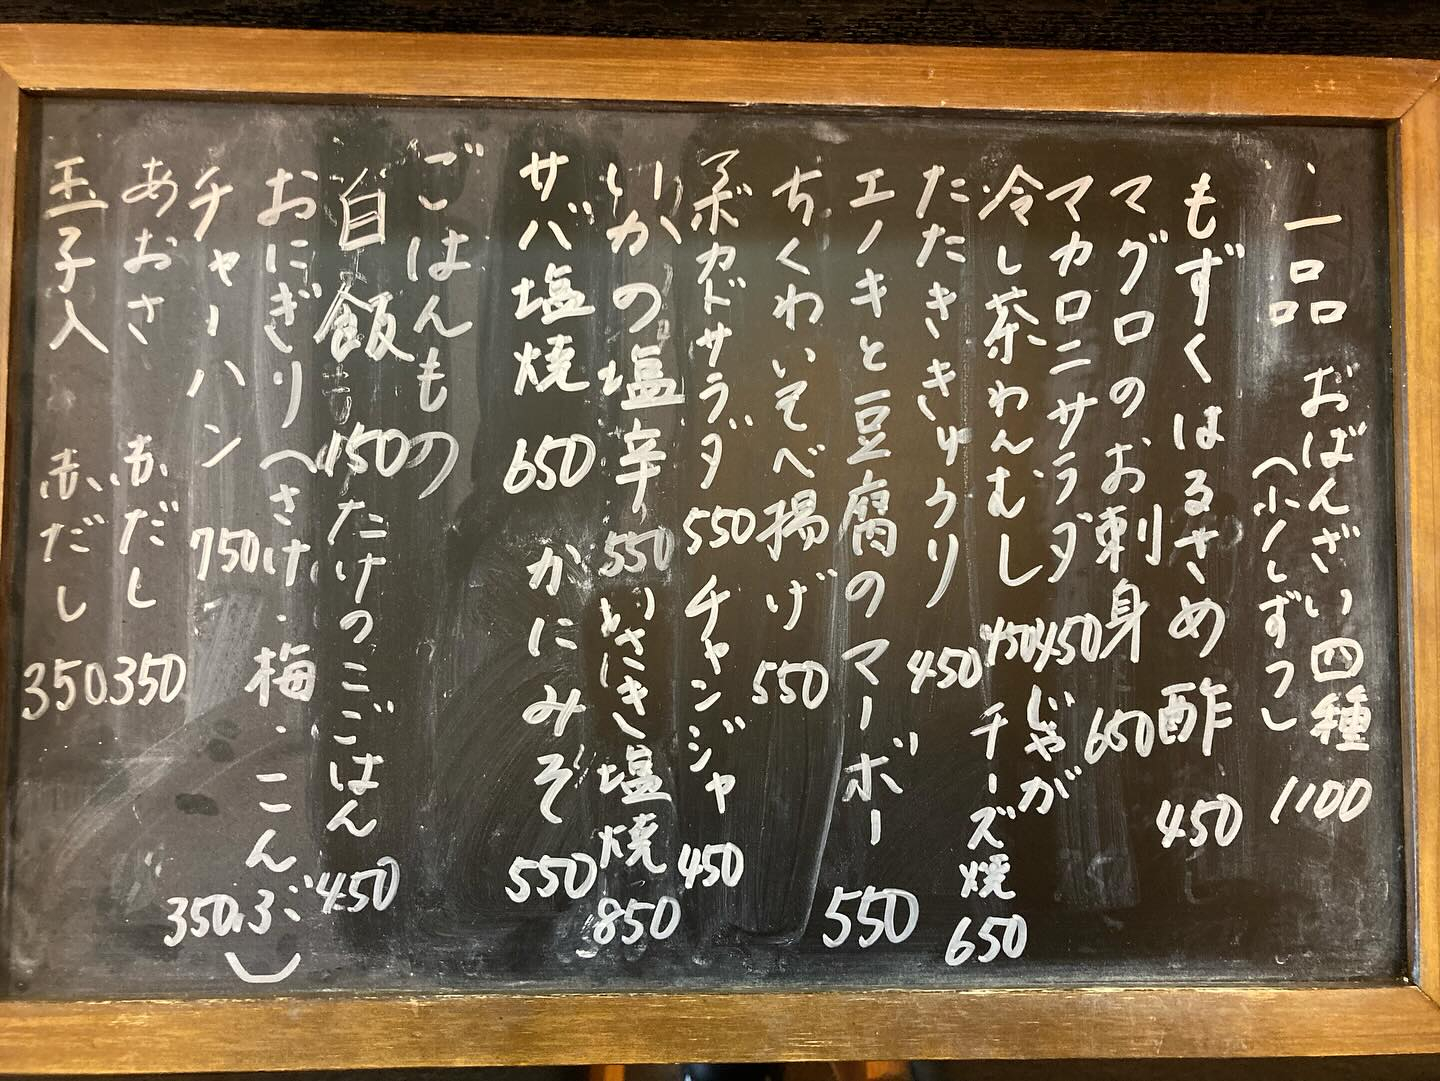 一品 おばんざい四種 1100
(小ノしずつ)
もずく はるさめ 酢 450
マグロのお刺身 650
マカロニサラダ 450
冷し茶わんむし 450
じゃがチーズ焼 650
たたききゅうり 450
エノキと豆腐のマーボー 550
ちくわいそべ揚げ 550
アボカドサラダ 550 チャンジャ 450
いかの塩辛 550 いさき塩焼 850
サバ塩焼 650 かにみそ 550
ごはんもの
白飯 150 たけのこごはん 450
おにぎり(さけ・梅・こんぶ) 350
チャーハン 750
あおさ 赤だし 350
玉子入 赤だし 350